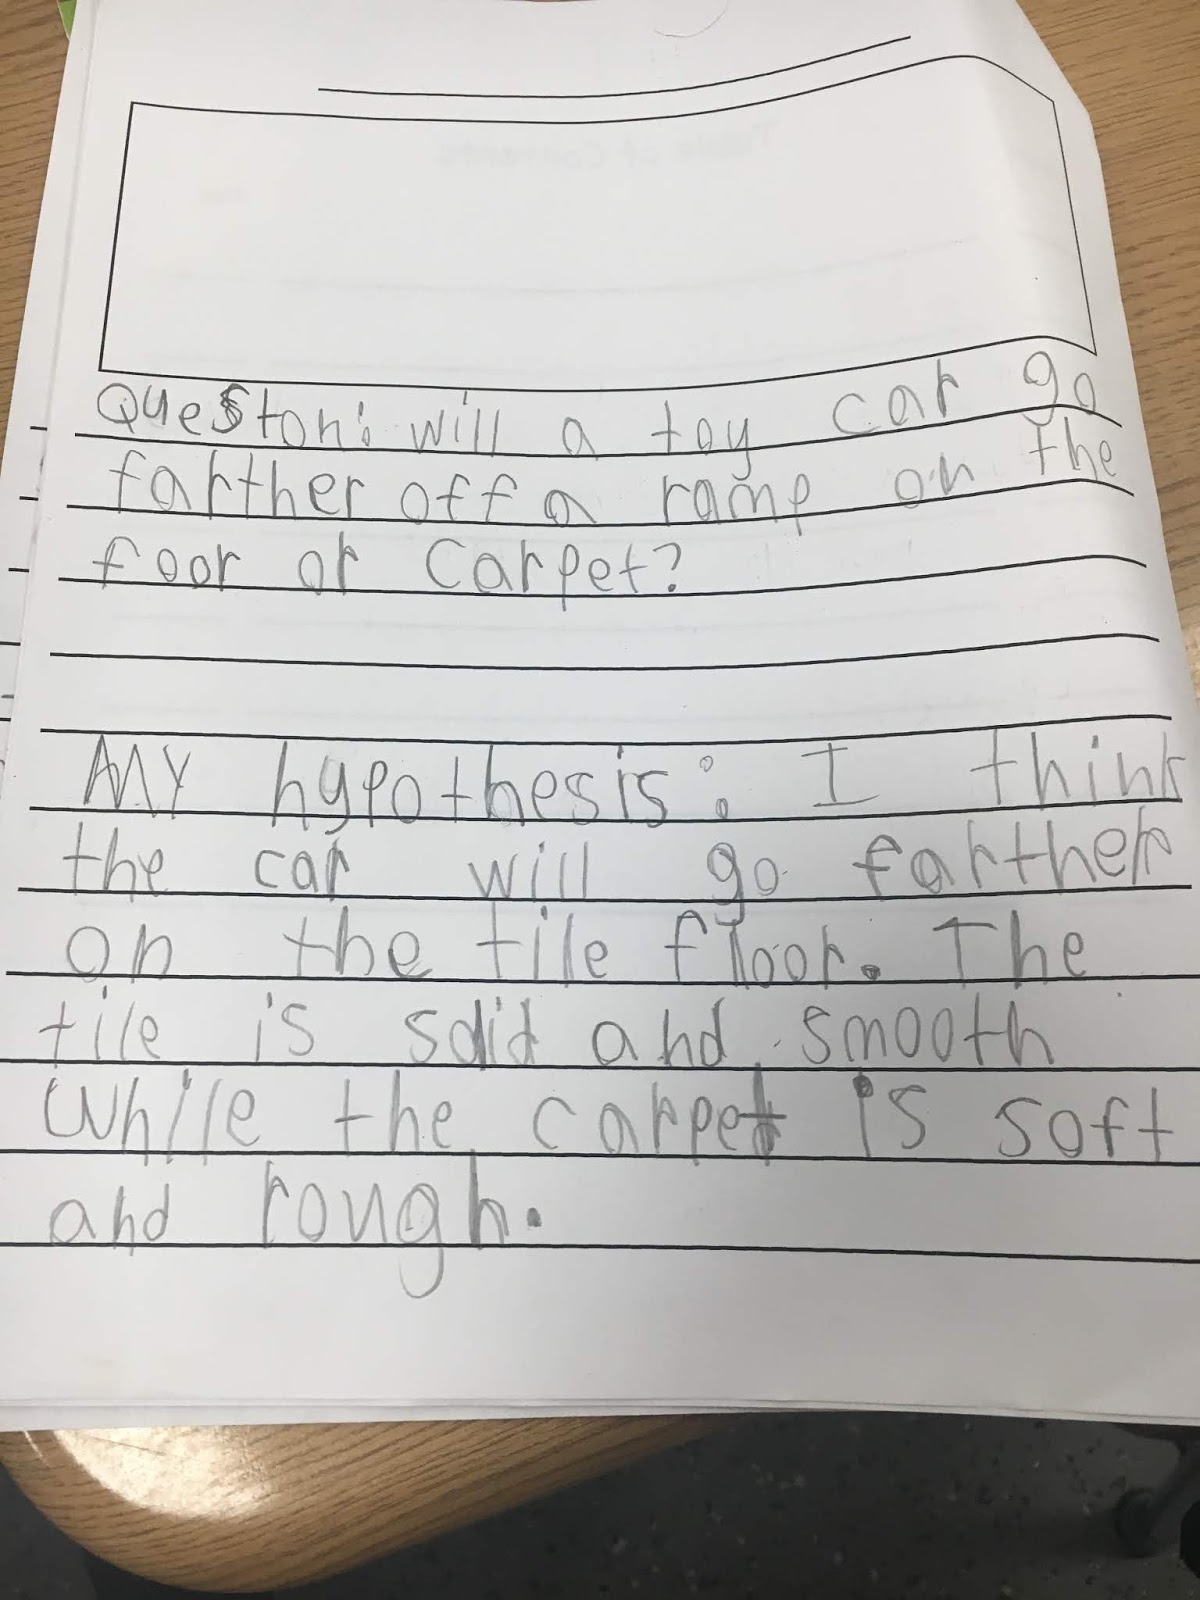 Queston: will a toy car go
farther off a ramp on the
foor or carpet?
My hypothesis: I think
the car will go farther
on the tile floor. The
tile is solid and smooth
While the carpet is soft
and rough.